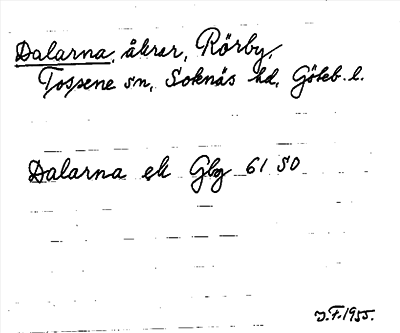 Dalarna, åkrar, Rörby,
Tossene sn, Sotenäs hd, Göteb. l.
Dalarna ek Gbg 61 SO
J.F. 1955.